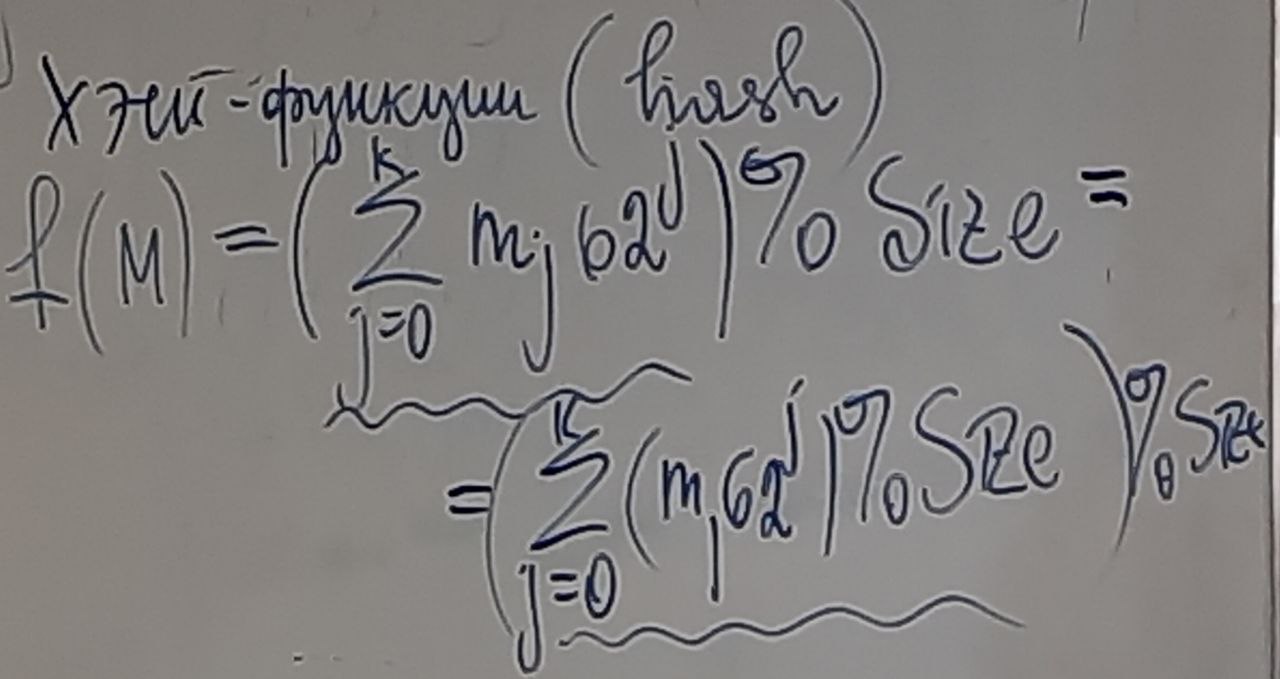 Хэш-функции (hash)
f(M) = (∑_{j=0}^{k} m_j 62^j) % Size =
= (∑_{j=0}^{k} (m_j 62^j) % Size) % Size